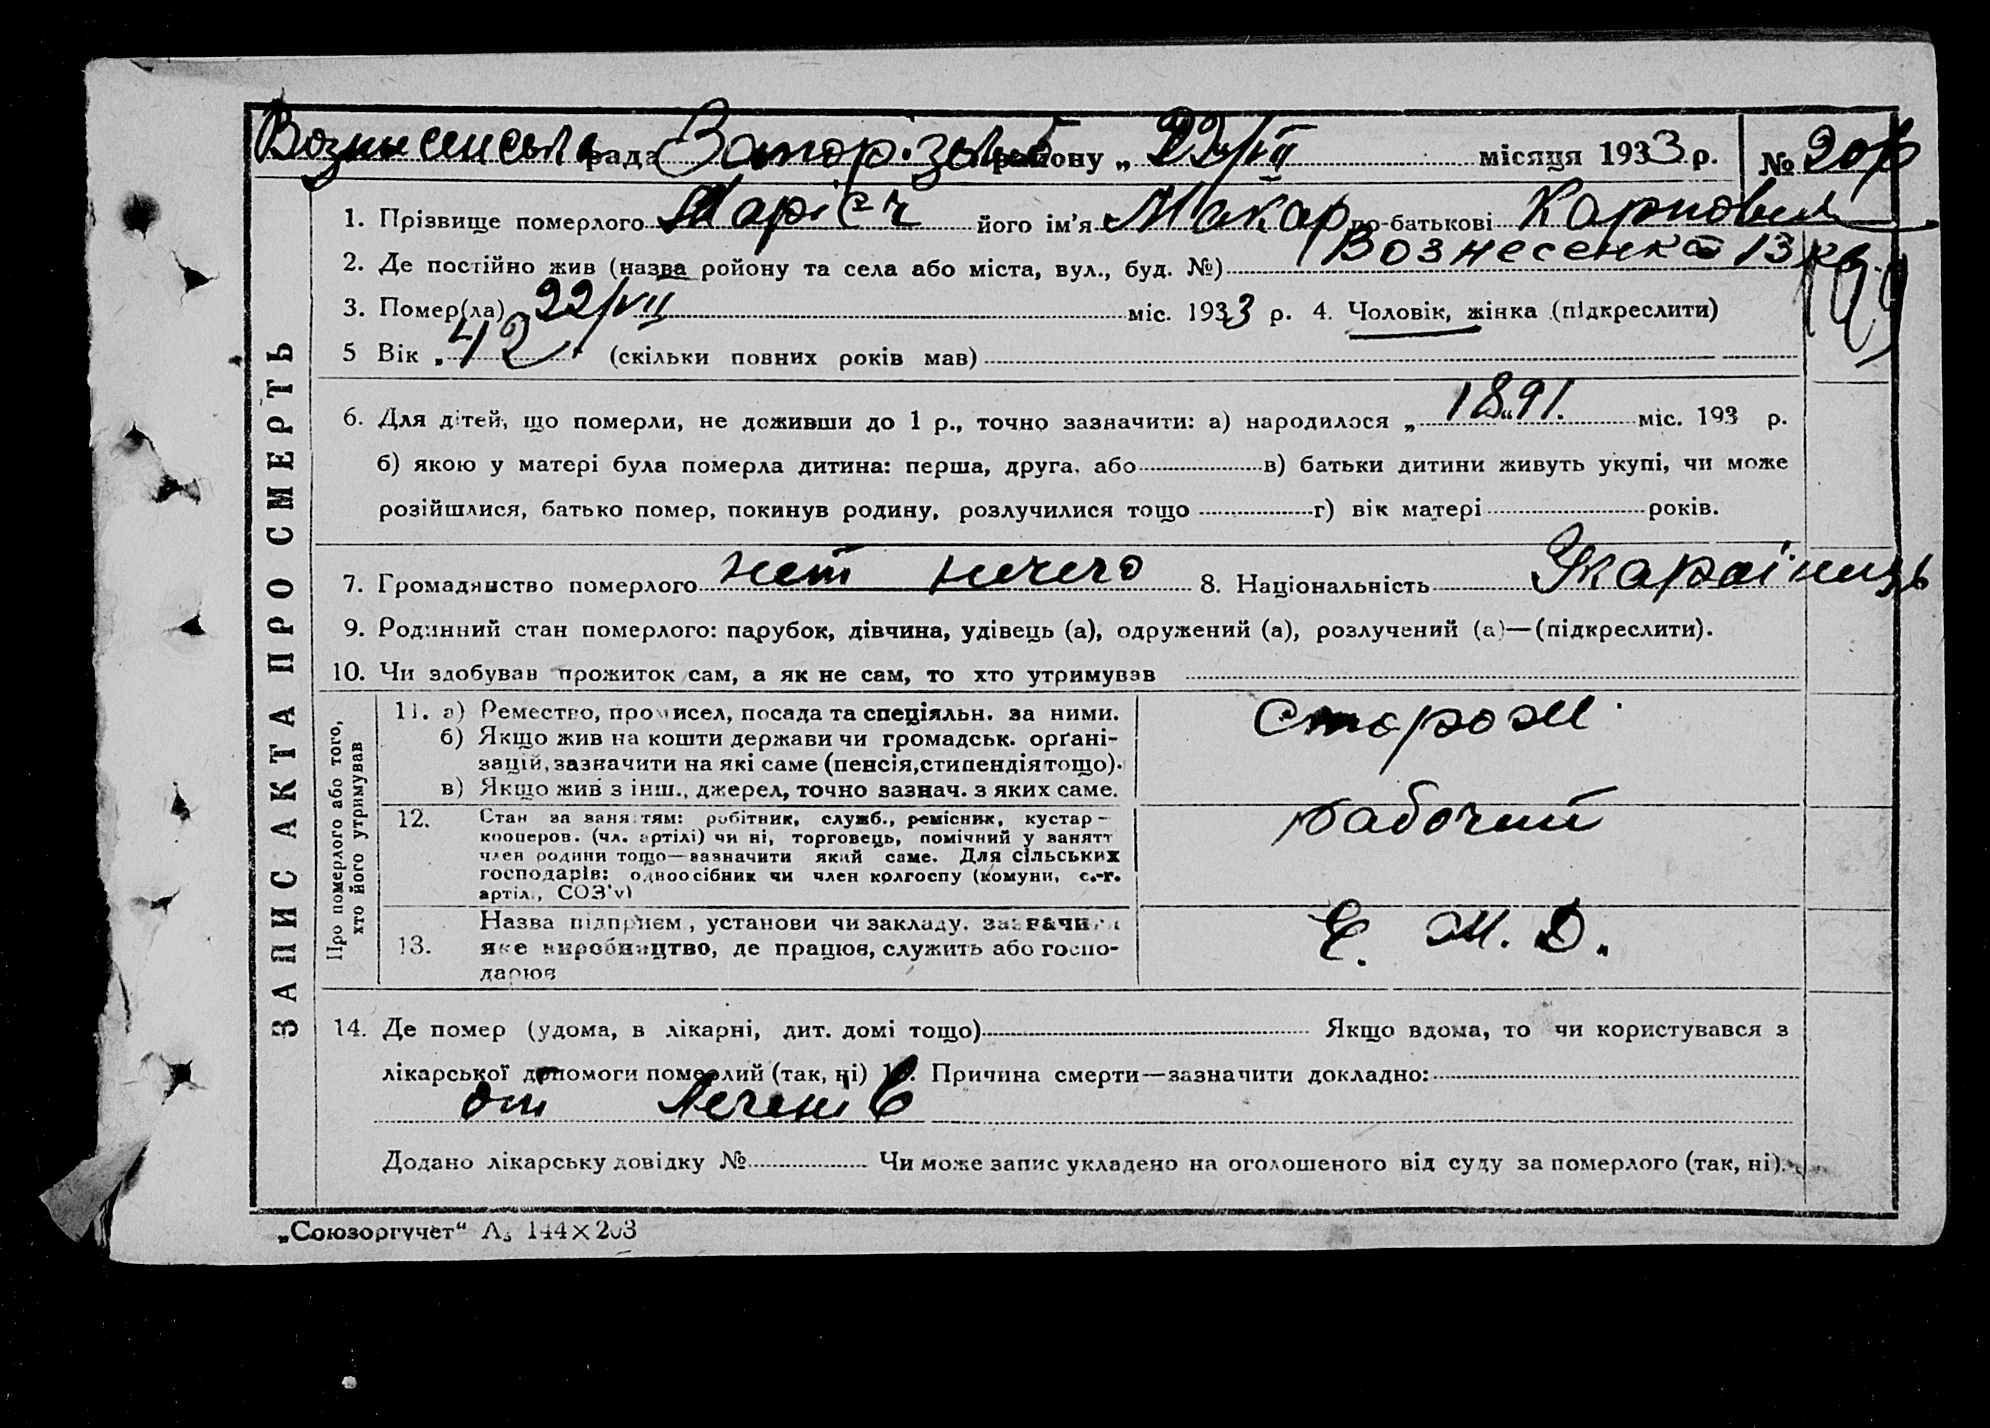 рада Запор.зького району „ 22/VII місяця 1933 р. №
1. Прізвище померлого його ім'я Макар по-батькові Карпович
2. Де постійно жив (назва ройону та села або міста, вул., буд. №) Вознесенка 13
3. Помер(ла) 22/VII міс. 1933 р. 4. Чоловік, жінка (підкреслити)
5 Вік „ 42 (скільки повних років мав)
6. Для дітей, що померли, не доживши до 1 р., точно зазначити: а) народилося „ 1891. міс. 193 р.
б) якою у матері була померла дитина: перша, друга, або в) батьки дитини живуть укупі, чи може
розійшлися, батько помер, покинув родину, розлучилися тощо г) вік матері років.
7. Громадянство померлого нет нечего 8. Національність Україниць
9. Родинний стан померлого: парубок, дівчина, удівець (а), одружений (а), розлучений (а)—(підкреслити).
10. Чи здобував прожиток сам, а як не сам, то хто утримував
ЗАПИС АКТА ПРО СМЕРТЬ
Про померлого або того,
хто його утримував
11. а) Ремество, промисел, посада та спеціяльн. за ними.
б) Якщо жив на кошти держави чи громадськ. орґані-
зацій, зазначити на які саме (пенсія, стипендія тощо).
в) Якщо жив з інш., джерел, точно зазнач. з яких саме.
Сторож
12. Стан за заняттям: робітник, служб., ремісник, кустар–
кооперов. (чл. артілі) чи ні, торговець, помічний у занятт
член родини тощо—зазначити який саме. Для сільських
господарів: одноосібник чи член колгоспу (комуни, с.-г.
артіл., СОЗ'у)
рабочий
13. Назва підприєм., установи чи закладу. зазначити
яке виробництво, де працює, служить або госпо-
дарює
Е. Ж. Д.
14. Де помер (удома, в лікарні, дит. домі тощо) Якщо вдома, то чи користувався з
лікарської допомоги померлий (так, ні) 1 . Причина смерти—зазначити докладно:
от
Додано лікарську довідку № Чи може запис укладено на оголошеного від суду за померлого (так, ні).
„Союзоргучет“ А₅ 144×203